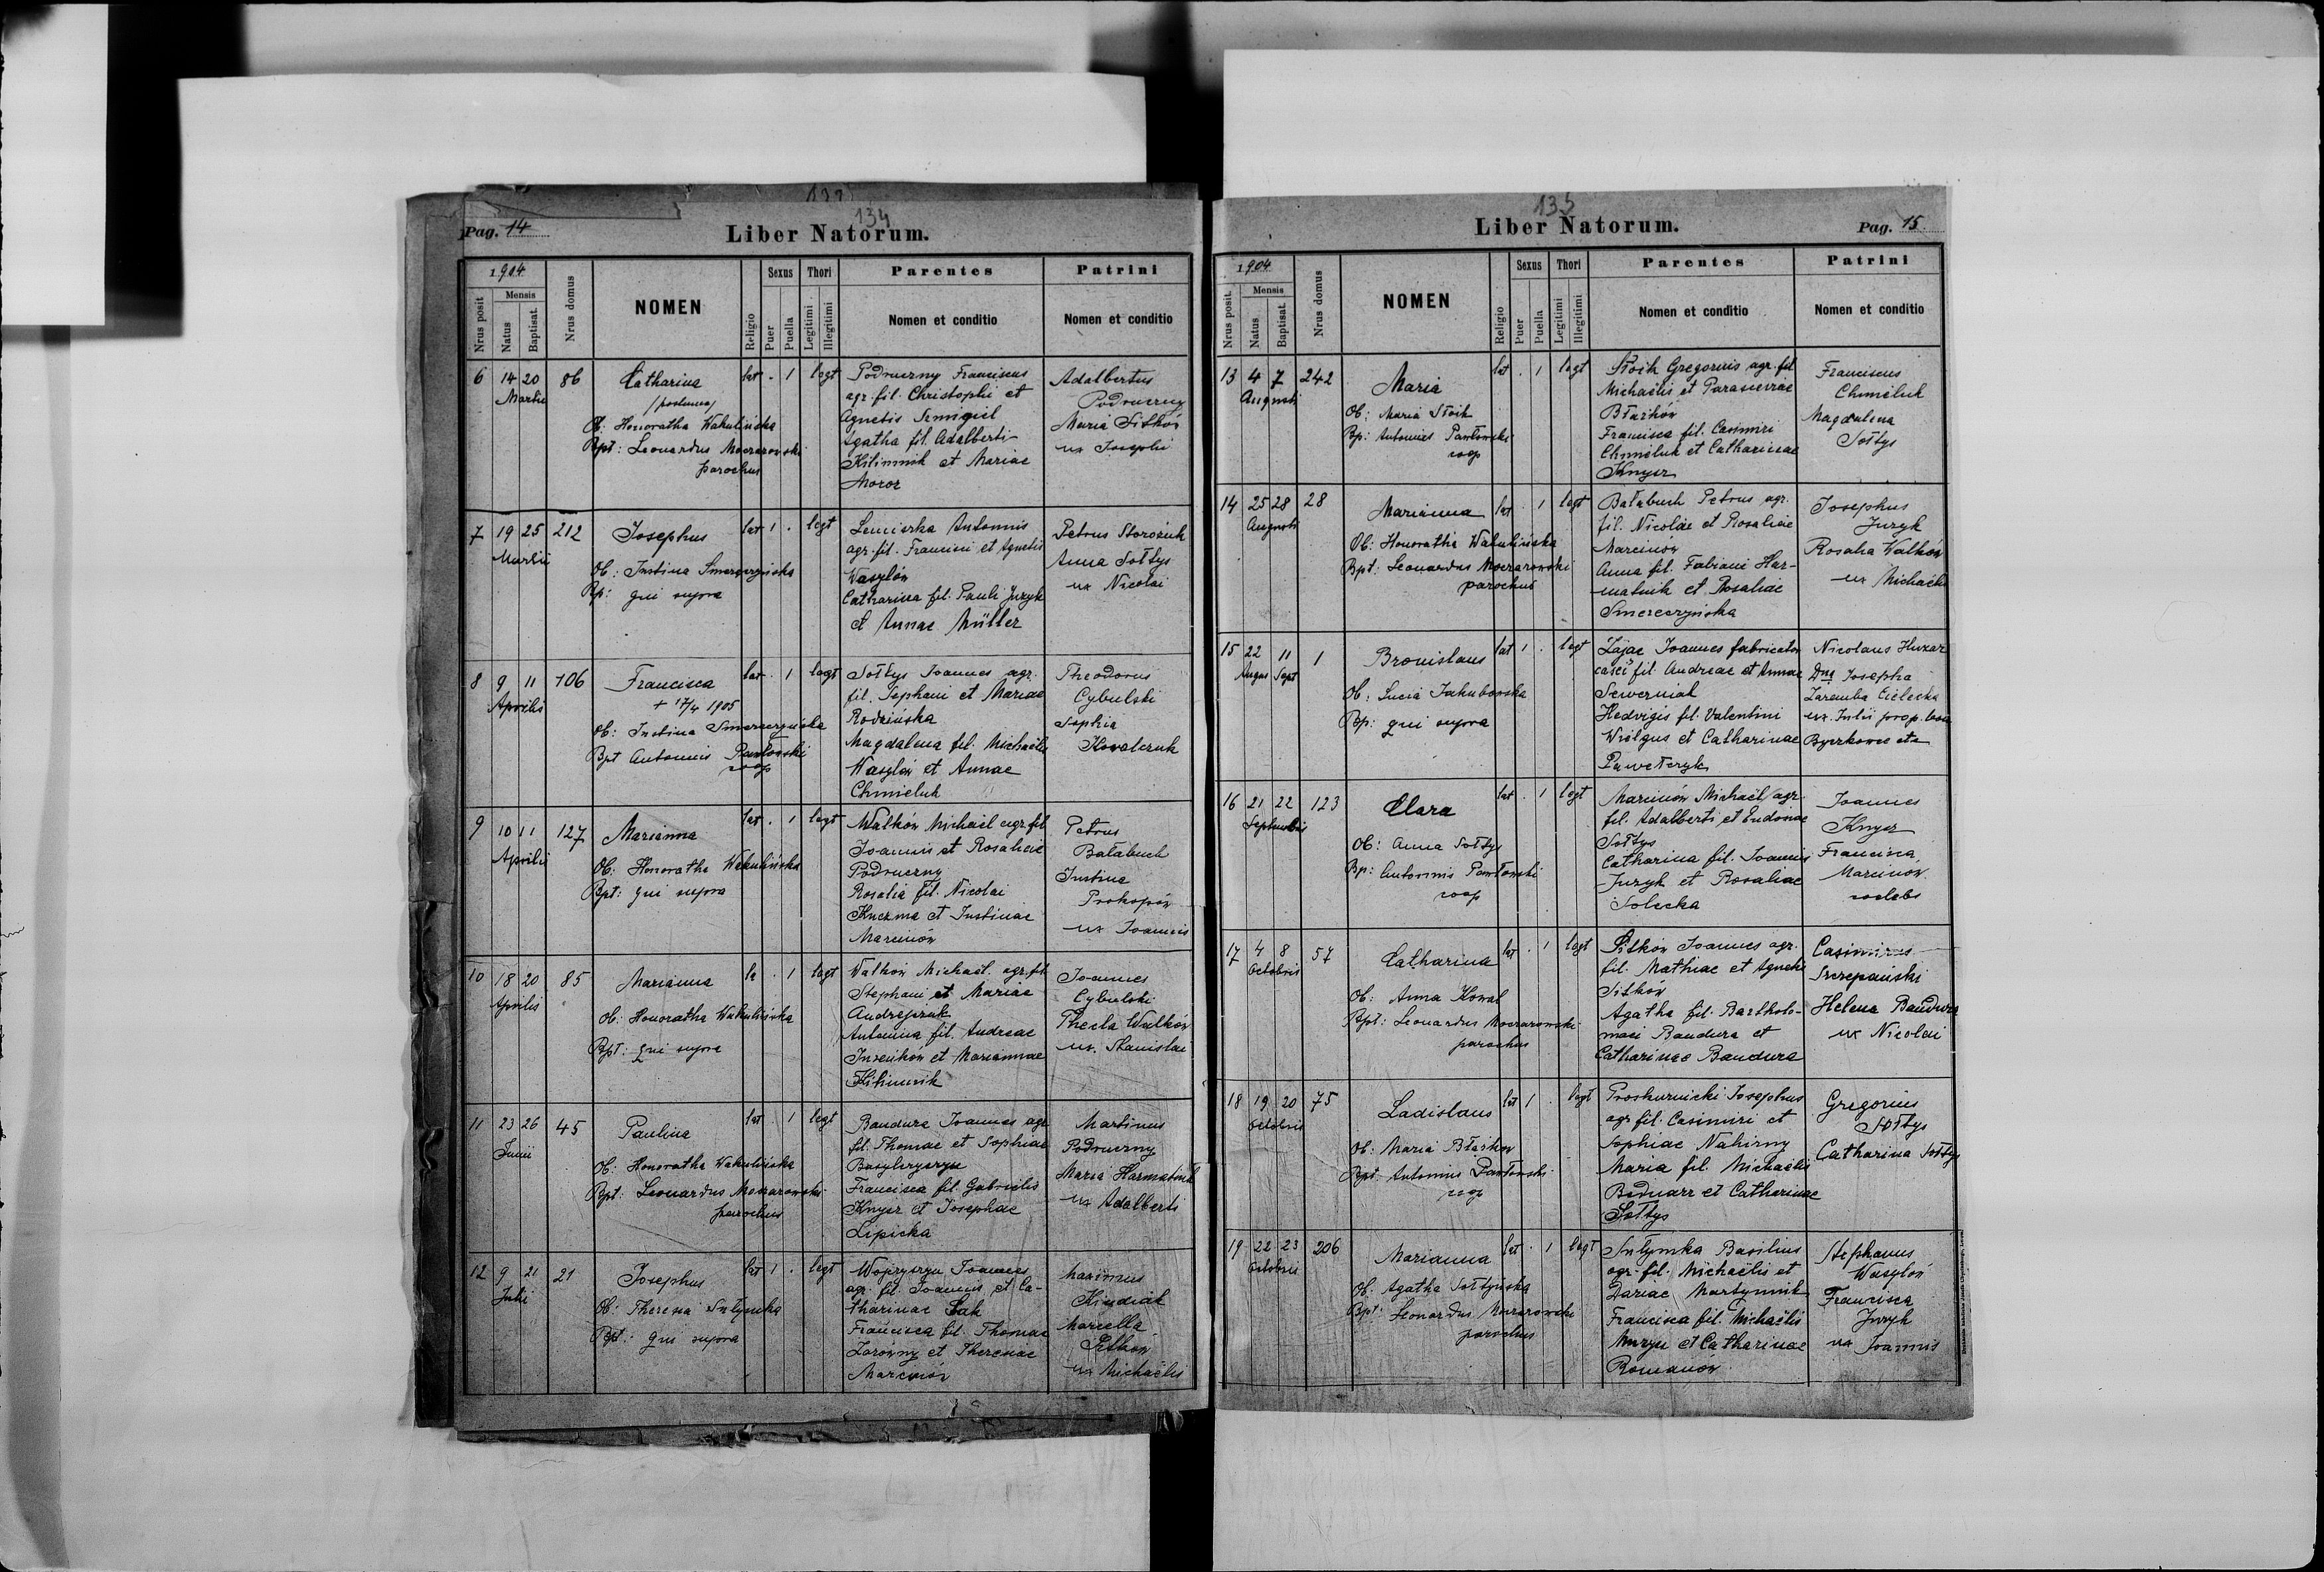 132
134
Pag. 14
Liber Natorum.
1904
Nrus posit
Mensis
Natus
Baptisat.
Nrus domus
NOMEN
Religio
Sexus
Puer
Puella
Thori
Legitimi
Illegitimi
Parentes
Nomen et conditio
Patrini
Nomen et conditio
6 14 20 86 Catharina lat . 1 legt
Martii
/postuma/
Ob: Honoratha Wakulińska
Bpt: Leonardus Moczarowski
parochus
Podruczny Franciscus
agr. fil. Christophi et
Agnetis Semigiel
Agatha fil. Adalberti
Kilimnik et Mariae
Moroz
Adalbertus
Podruczny
Maria Sitkóv
ux Josephi
7 19 25 212 Josephus lat 1 . legt
Martii
Ob: Justina Smereczyńska
Bp: qui supra
Lemiszka Antonius
agr. fil. Francisci et Agnetis
Wasylów
Catharina fil. Pauli Juzyk
et Annae Müller
Petrus Storożuk
Anna Sołtys
ux Nicolai
8 9 11 106 Francisca lat . 1 legt
Aprilis
+ 17/4 1905
Ob: Justina Smereczyńska
Bpt Antonius Pawłowski
coop
Sołtys Joannes agr.
fil. Stephani et Mariae
Rodzińska
Magdalena fil. Michaëlis
Wasylów et Annae
Chmieluk
Theodorus
Cybulski
Sophia
Kowalczuk
9 10 11 127 Marianna lat . 1 legt
Aprilis
Ob: Honoratha Wakulińska
Bpt: qui supra
Walków Michaël agr. fil
Joannis et Rosaliae
Podruczny
Rosalia fil. Nicolai
Kuczma et Justinae
Marcinów
Petrus
Bałabuch
Justina
Prokopów
ux Joannis
10 18 20 85 Marianna la . 1 legt
Aprilis
Ob: Honoratha Wakulińska
Bpt: qui supra
Walków Michaël. agr. fil
Stephani et Mariae
Andrejczuk
Antonina fil. Andreae
et Mariannae
Kilimnik
Joannes
Cybulski
Thecla Walków
ux. Stanislai
11 23 26 45 Paulina lat . 1 legt
Junii
Ob: Honoratha Wakulińska
Bpt: Leonardus Moczarowski
parochus
Bandura Joannes agr
fil. Thomae et Sophiae
Francisca fil. Gabrielis
Knysz et Josephae
Lipicka
Martinus
Podruczny
Maria Harmatnik
ux Adalberti
12 9 21 21 Josephus lat 1 . legt
Julii
Ob: Theresia Sułymka
Bpt: qui supra
Joannes
agr. fil. Joannis et Ca-
tharinae Sak
Francisca fil. Thomae
et Theresiae
Marcinów
Maximus
Kindiak
Marcella
Sitkow
ux Michaëlis
135
Liber Natorum.
Pag. 15
1904
Nrus posit.
Mensis
Natus
Baptisat.
Nrus domus
NOMEN
Religio
Sexus
Puer
Puella
Thori
Legitimi
Illegitimi
Parentes
Nomen et conditio
Patrini
Nomen et conditio
13 4 7 242 Maria lat . 1 legt
Augusti
Ob: Maria Stoik
Bp: Antonius Pawłowski
coop
Stoik Gregorius agr. fil
Michaëlis et Parasceviae
Błażków
Francisca fil. Casimiri
Chmieluk et Catharinae
Knysz
Franciscus
Chmieluk
Magdalena
Sołtys
14 25 28 28 Marianna lat . 1 legt
Augusti
Ob: Honoratha Wakulińska
Bpt: Leonardus Moczarowski
parochus
Bałabuch Petrus agr.
fil. Nicolai et Rosaliae
Marcinów
Anna fil. Fabiani Har-
matnik et Rosaliae
Smereczyńska
Josephus
Juzyk
Rosalia Walków
ux Michaëlis
15 22 11 1 Bronislaus lat 1 . legt
Augus Sept
Ob: Lucia Jakubowska
Bp: qui supra
Zając Joannes fabricator
casei fil. Andreae et Annae
Seweruiak
Hedvigis fil. Valentini
Wilgus et Catharinae
Pawełczyk
Nicolaus Huzar
Dna Josepha
Zaremba Cielecka
ux. Julii prop. bon
Byczkowce etc
16 21 22 123 Clara lat . 1 legt
Septembris
Ob: Anna Sołtys
Bp: Antonius Pawłowski
coop
Marcinów Michaël agr.
fil. Adalberti et Eudoxiae
Sołtys
Catharina fil. Joannis
Juzyk et Rosaliae
Solecka
Joannes
Knysz
Francisca
Marcinów
coelebs
17 4 8 57 Catharina lat . 1 legt
Octobris
Ob: Anna Kowal
Bpt: Leonardus Moczarowski
parochus
Sitków Joannes agr.
fil. Mathiae et Agnetis
Sitków
Agatha fil. Bartholo-
maei Bandura et
Catharinae Bandura
Casimirus
Szczepański
Helena Bandura
ux Nicolai
18 19 20 75 Ladislaus lat 1 . legt
Octobris
Ob: Maria Błażkow
Bpt: Antonius Pawłowski
coop
Proskurnicki Josephus
agr. fil. Casimiri et
Sophiae Nahirny
Maria fil. Michaëlis
Bednarz et Catharinae
Sołtys
Gregorius
Sołtys
Catharina Sołtys
19 22 23 206 Marianna lat . 1 legt
Octobris
Ob: Agatha Sołtyńska
Bpt: Leonardus Moczarowski
parochus
Sułymka Basilius
agr. fil. Michaëlis et
Dariae Martynnik
Francisca fil. Michaëlis
Muzyn et Catharinae
Romanów
Stephanus
Wasylów
Francisca
Juzyk
ux Joannis